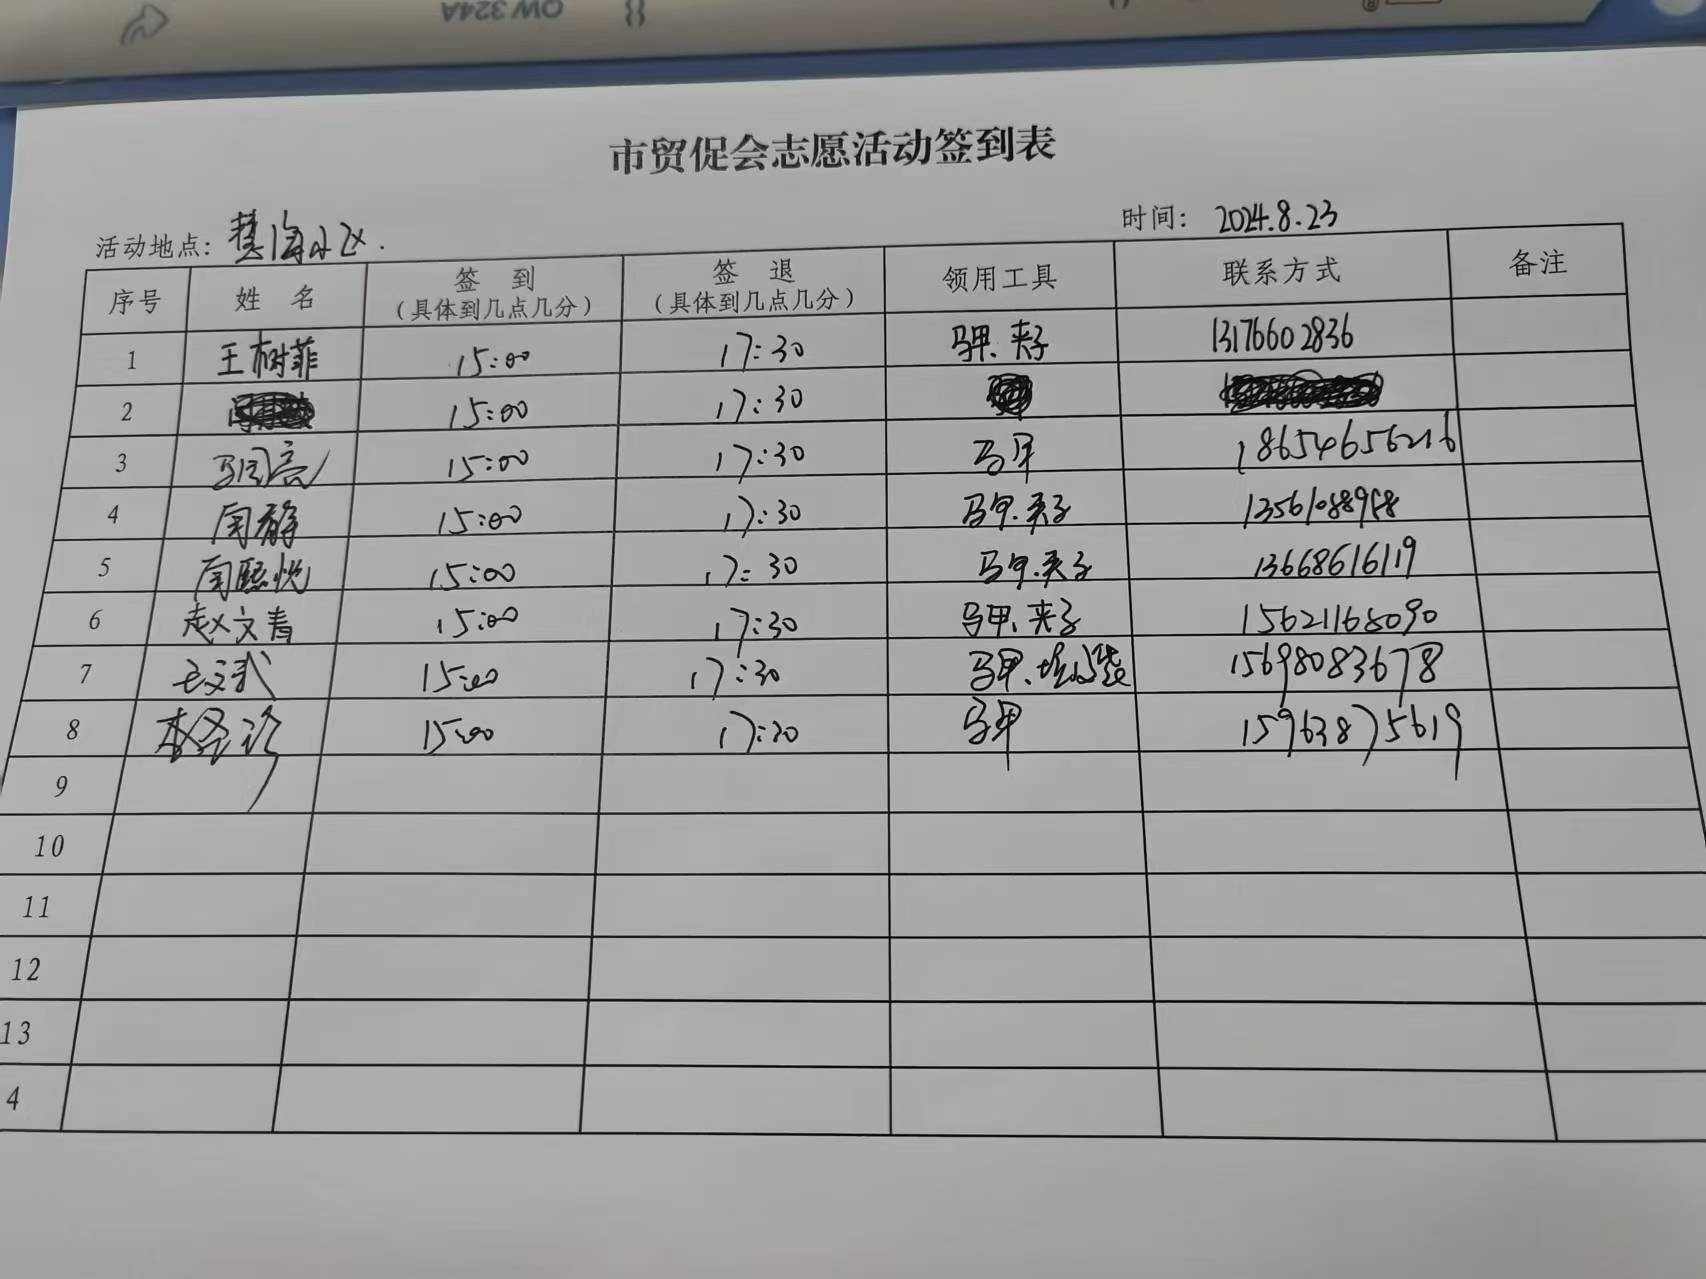 QW 324A
市贸促会志愿活动签到表
活动地点: 小区.
时间: 2024.8.23
序号 姓 名 签 到 (具体到几点几分) 签 退 (具体到几点几分) 领用工具 联系方式 备注
1 王树菲 15:00 17:30 马甲、夹子 13176602836
2 15:00 17:30
3 15:00 17:30 马甲 18654656216
4 周静 15:00 17:30 马甲、夹子
5 周熙悦 15:00 17:30 马甲、夹子 13668616119
6 赵文青 15:00 17:30 马甲、夹子 15621168090
7 王文武 15:00 17:30 马甲、垃圾袋 15698083678
8 15:00 17:30 马甲 15963875619
9
10
11
12
13
4